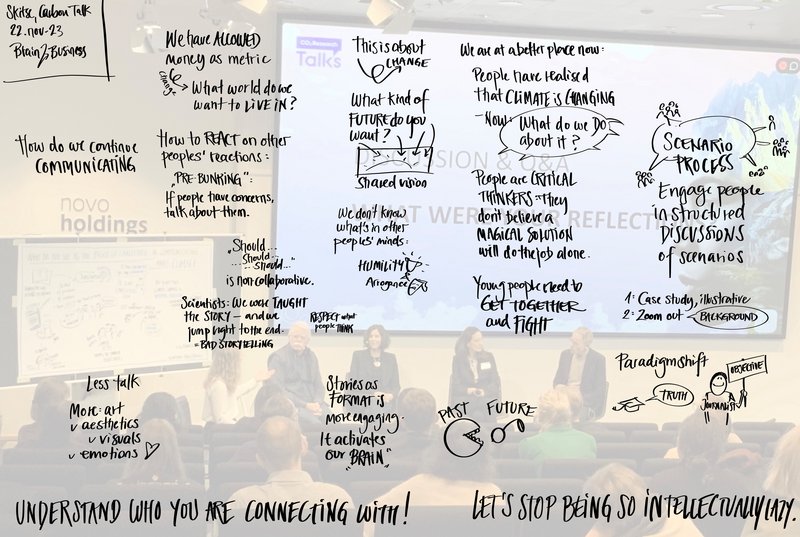 Skitse, Carbon Talk
22. nov-23
Brain2Business
We have ALLOWED
money as metric
change
What world do we
want to LIVE IN?
This is about
CHANGE
What kind of
FUTURE do you
want?
Shared vision
We are at a better place now:
People have realised
that CLIMATE IS CHANGING
Now:
What do we DO
about it?
CO2 Research
Talks
DISCUSSION & Q&A
SCENARIO
PROCESS
Engage people
in structured
DISCUSSIONS
of scenarios
1: Case study, illustrative
2: Zoom out
BACKGROUND
How do we continue
COMMUNICATING
novo
holdings
How to REACT on other
peoples' reactions:
"PRE-BUNKING":
If people have concerns,
talk about them.
"Should...
Should...
Should..."
is non-collaborative.
We don't know
what's in other
peoples' minds:
HUMILITY
Arrogance
People are CRITICAL
THINKERS: They
don't believe a
MAGICAL SOLUTION
will do the job alone.
Young people need to
GET TOGETHER
and FIGHT
Scientists: We were TAUGHT
the STORY – and we
jump right to the end.
= BAD STORYTELLING
RESPECT what
people THINK
Less talk
More: art
aesthetics
visuals
emotions
Stories as
FORMAT is
more engaging.
It activates
our "BRAIN"
PAST FUTURE
Paradigm shift
TRUTH
OBJECTIVE
JOURNALIST
UNDERSTAND WHO YOU ARE CONNECTING WITH!
LET'S STOP BEING SO INTELLECTUALLY LAZY.